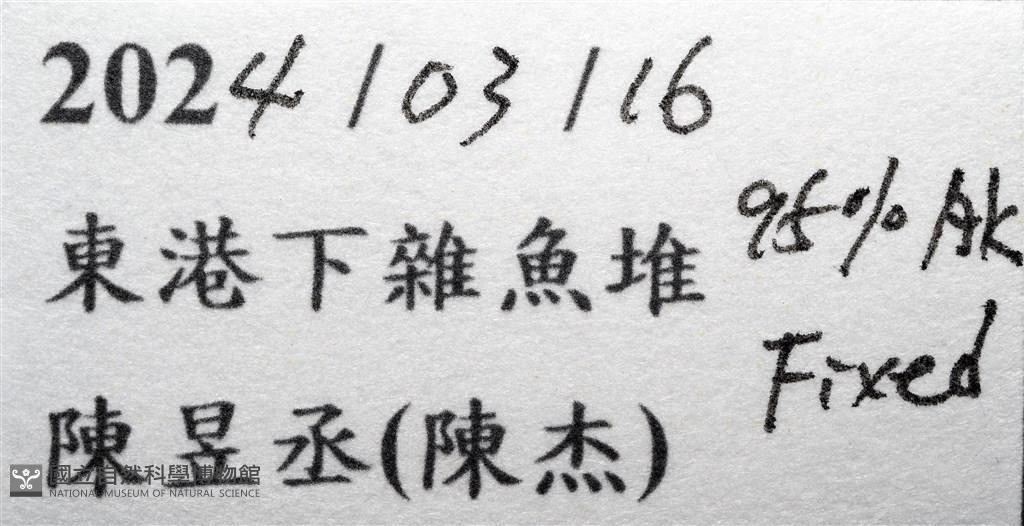 2024/03/16
東港下雜魚堆
95% Alc
Fixed
陳昱丞(陳杰)
國立自然科學博物館
NATIONAL MUSEUM OF NATURAL SCIENCE